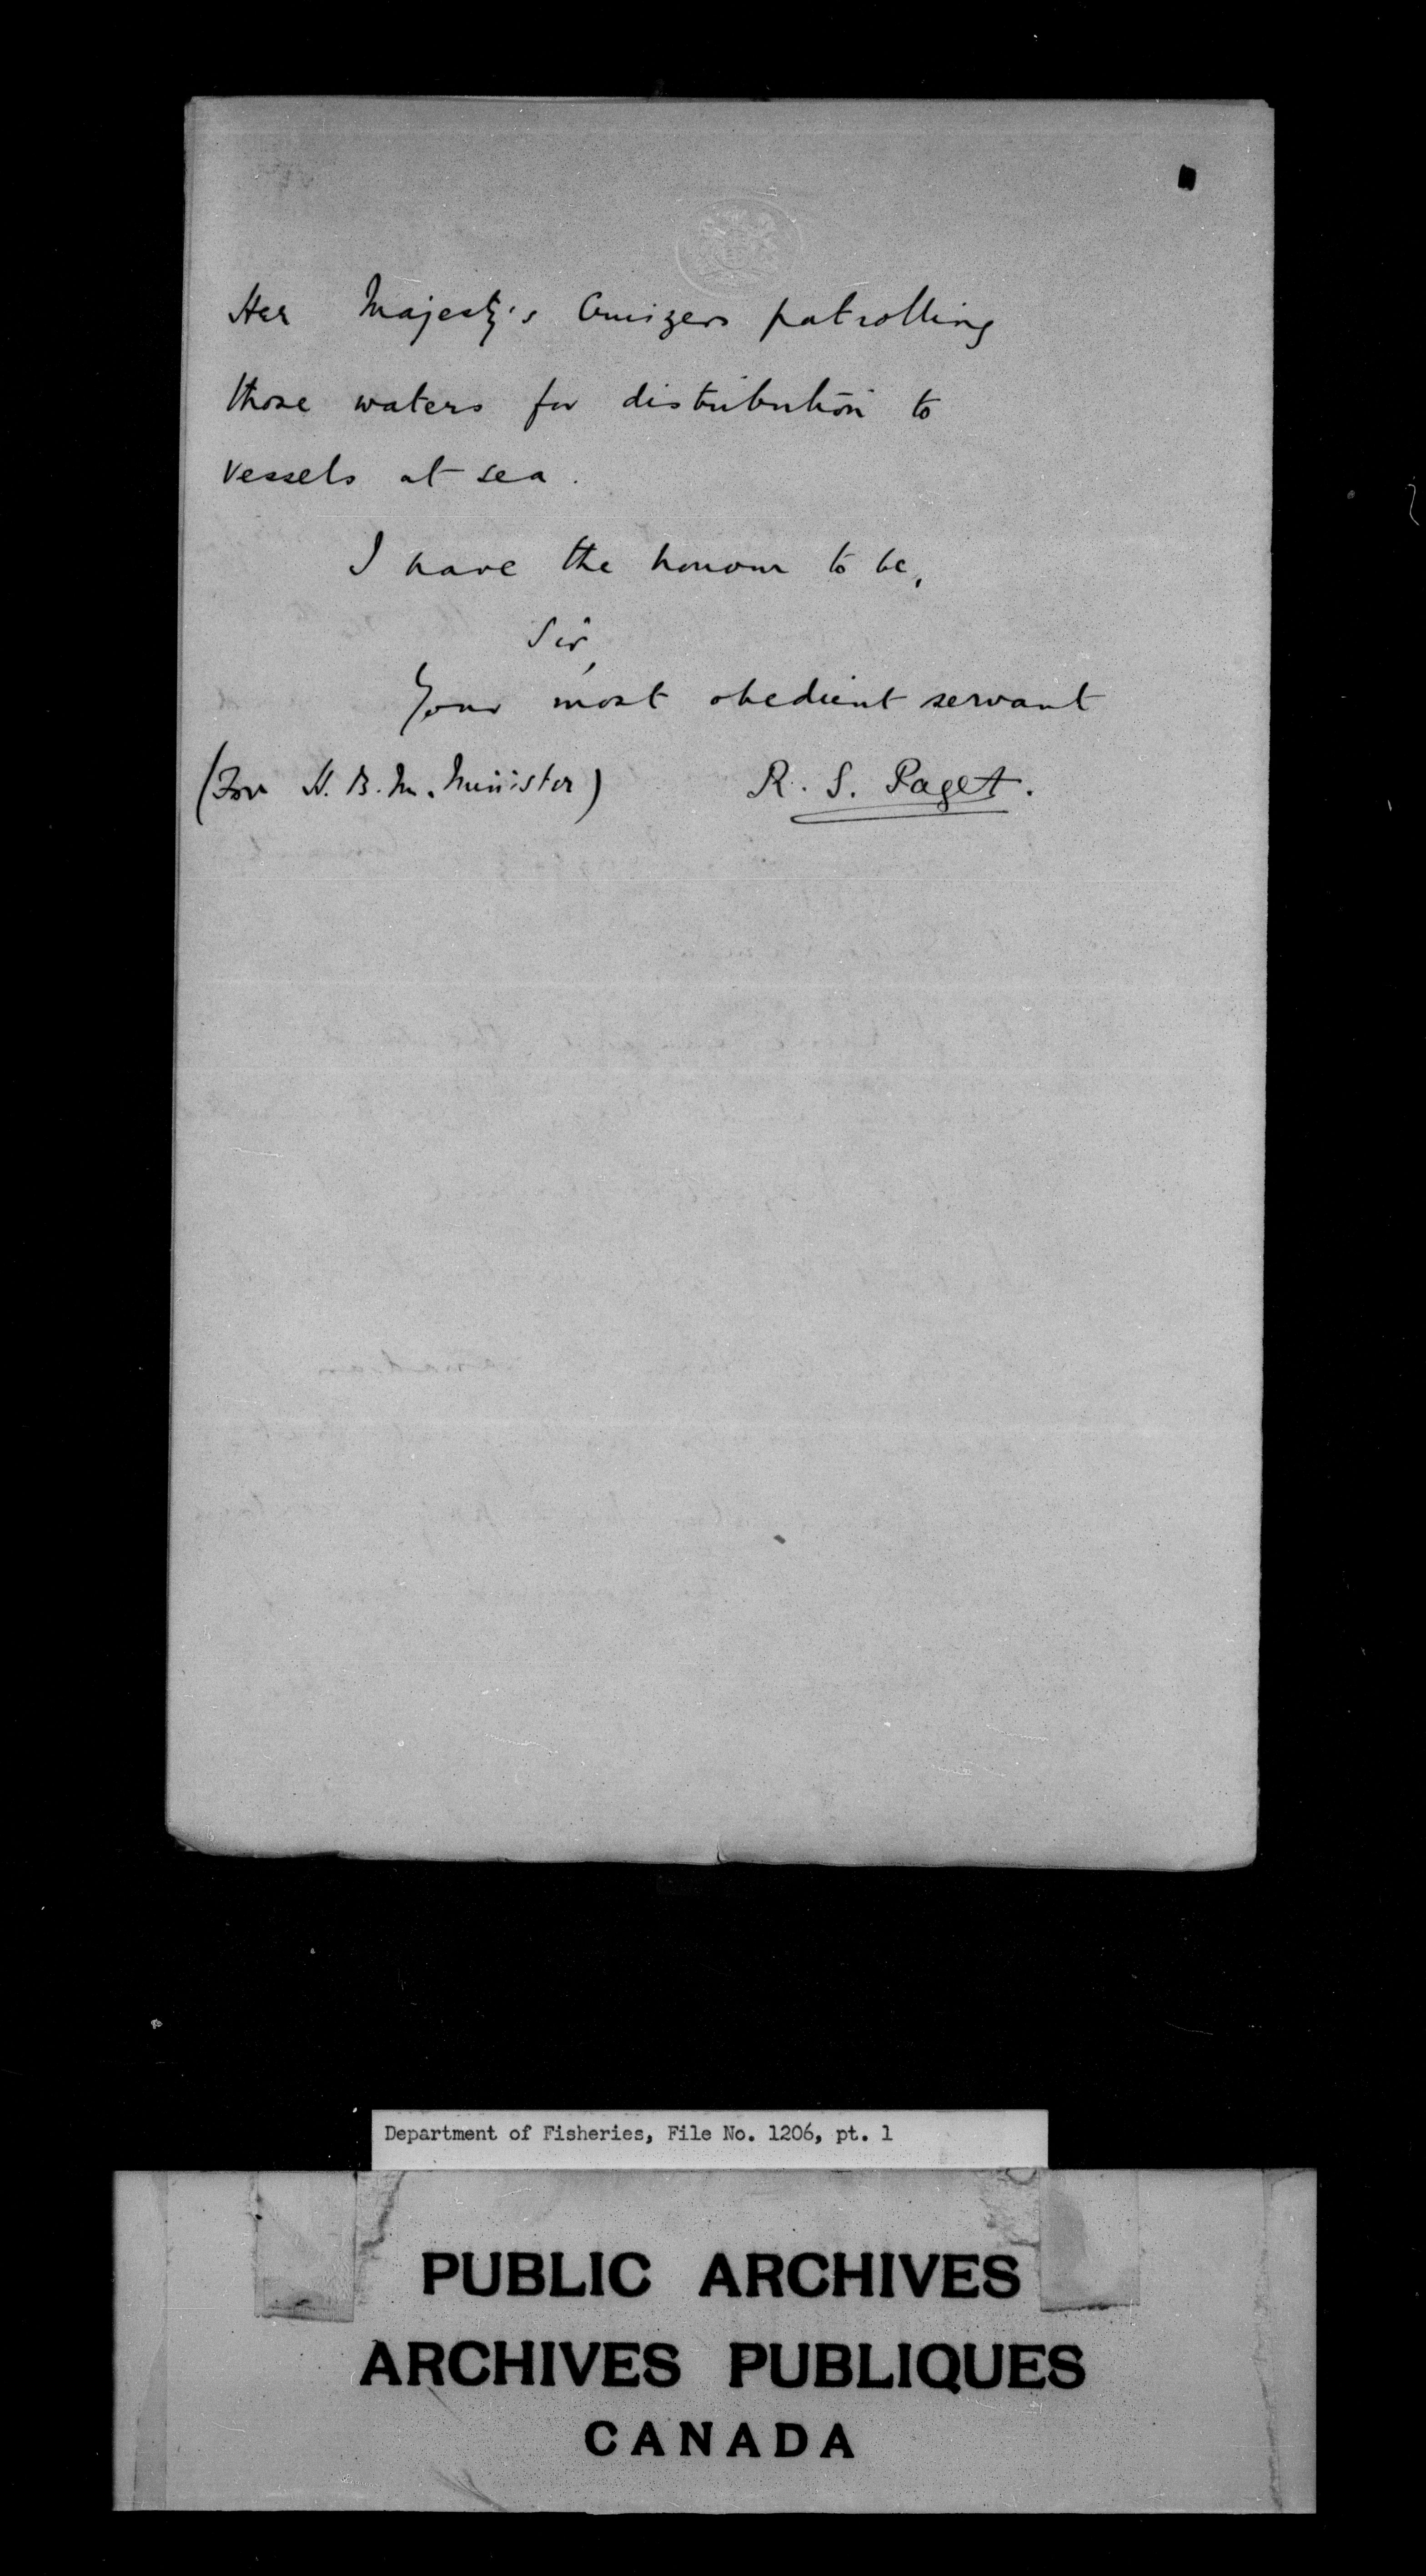 Her Majesty's Cruizers patrolling
those waters for distribution to
vessels at sea.
I have the honour to be,
Sir,
Your most obedient servant
(For H. B. M. Minister) R. S. Paget.
Department of Fisheries, File No. 1206, pt. 1
PUBLIC ARCHIVES
ARCHIVES PUBLIQUES
CANADA